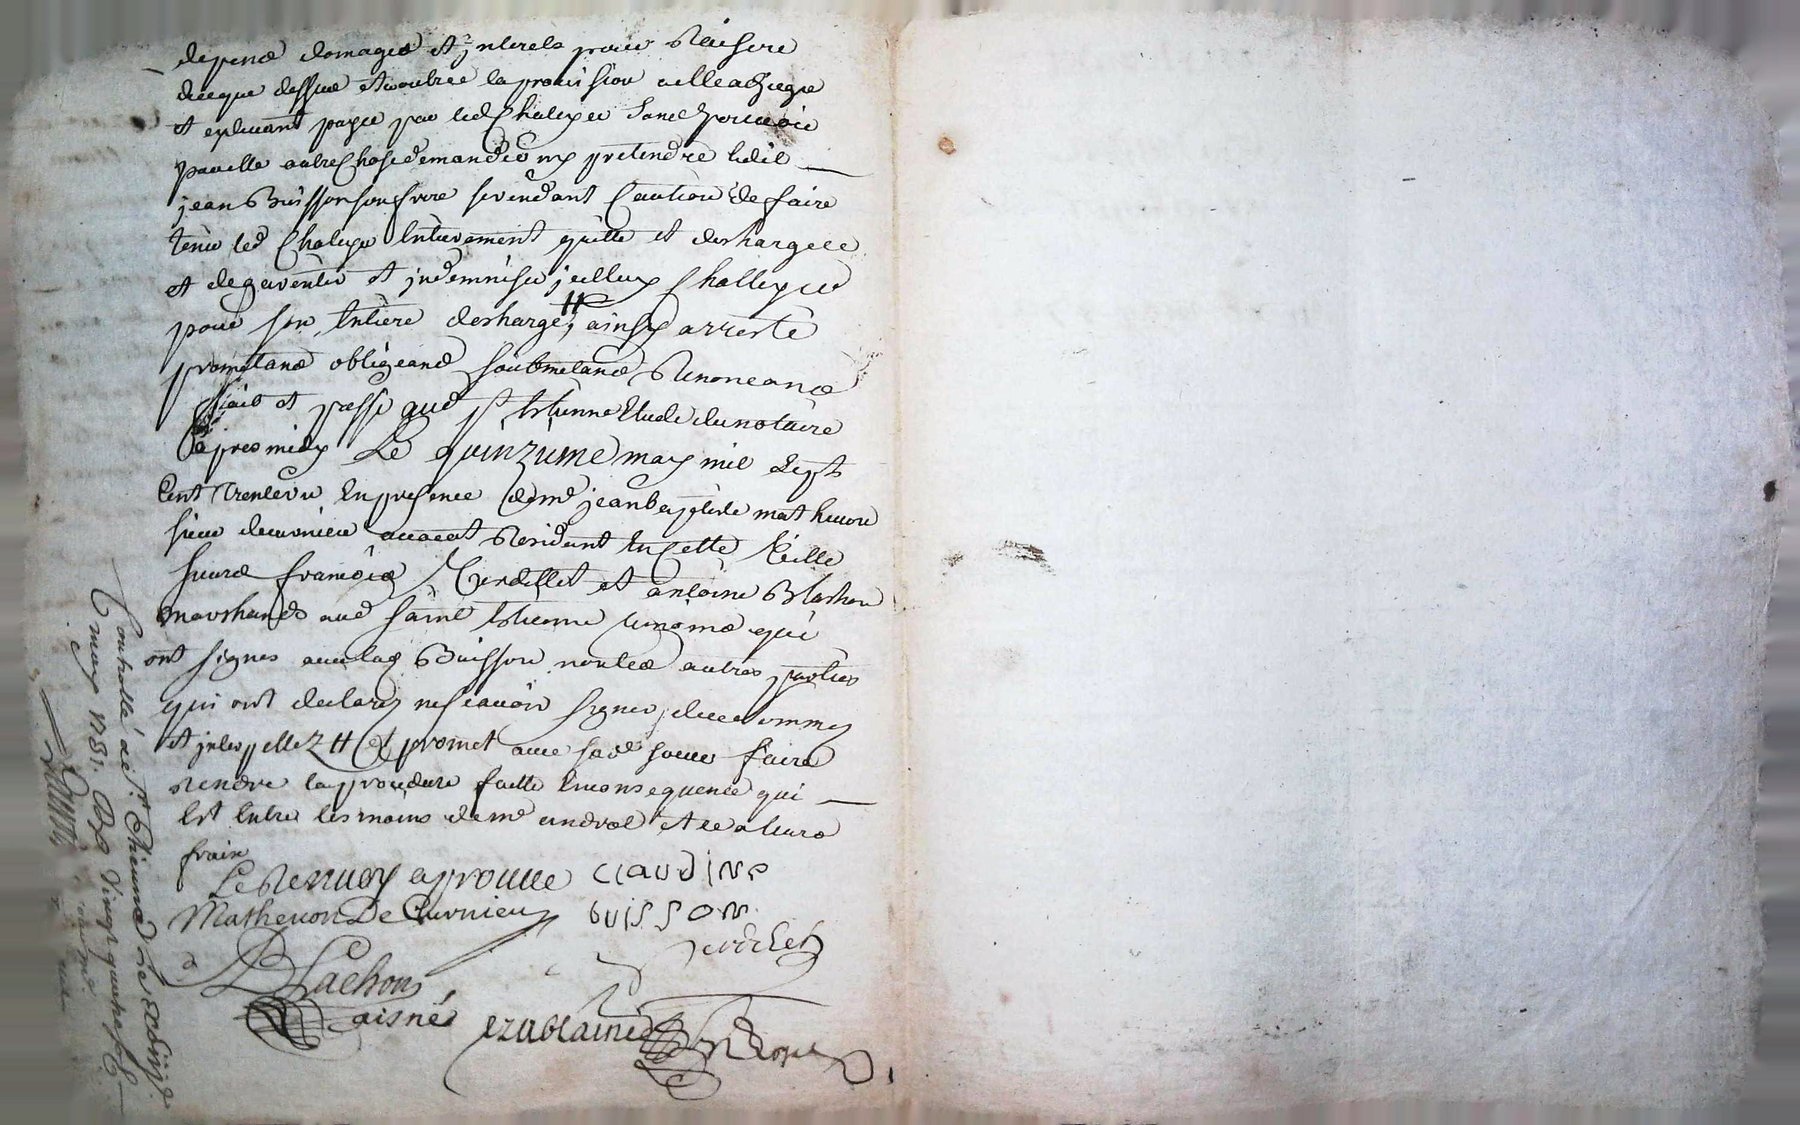 depens domages et jnterets pour Raison
de ceque dessus et outre la provision a elle adjugée
et cydevant payée par led Chaleyer sans pouvoir
par elle autre chose demander ny pretendre ledit
jean Buisson son frere se rendant Caution de faire
tenir led Chaleyer entierement quitte et deschargé
et de garentir et jndemniser jcelluy Challeyer
pour son entiere descharge, ainsy arresté
prometans obligeans soubmetans Renonceans
fait et passé aud st etienne etude du notaire
apres midy Le quinzieme may mil sept
Cent trente un en presence de me jean baptiste mathevon
sieur de curnieu avocat Residant en cette ville
sieurs françois Verdellet et antoine Blachon
marchands aud saint etienne temoins qui
ont signés avec lad Buisson non les autres parties
qui ont declaré ne scavoir signer, de ce enquis
et jnterpellez # et promet avec sad soeur faire
rendre la procedure faitte en consequence qui
est entre les mains de me et ce a leurs
frais
Le Renvoy aprouvé claudine
Mathevon De Curnieu buisson
Blachon
aisné
Controllé a st Etienne Le
may 1731. Vingt quatre s